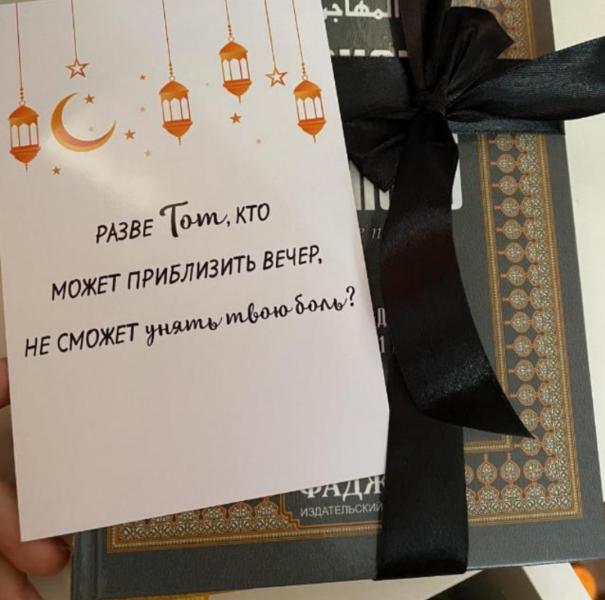 РАЗВЕ Тот, КТО
МОЖЕТ ПРИБЛИЗИТЬ ВЕЧЕР,
НЕ СМОЖЕТ унять твою боль?
ИЗДАТЕЛЬСКИЙ